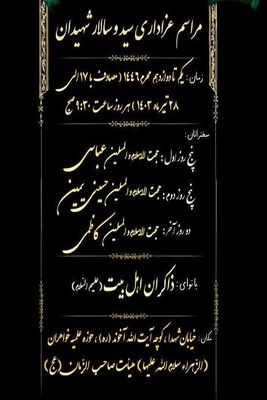 مراسم عزاداری سید و سالار شهیدان
زمان: یکم تا دوازدهم محرم ۱۴۴۶ (مصادف با ۱۷ الی
۲۸ تیر ماه ۱۴۰۳) هر روز ساعت ۹:۳۰ صبح
سخنرانان:
پنج روز اول: حجت الاسلام والمسلمین عباسی
پنج روز دوم: حجت الاسلام والمسلمین حسینی یمین
دو روز آخر: حجت الاسلام والمسلمین کاظمی
با نوای: ذاکران اهل بیت (علیهم السلام)
مکان: خیابان شهدا، کوچه آیت الله آخوند (ره)، حوزه علمیه خواهران
(الزهراء سلام الله علیها) هیئت صاحب الزمان (عج)